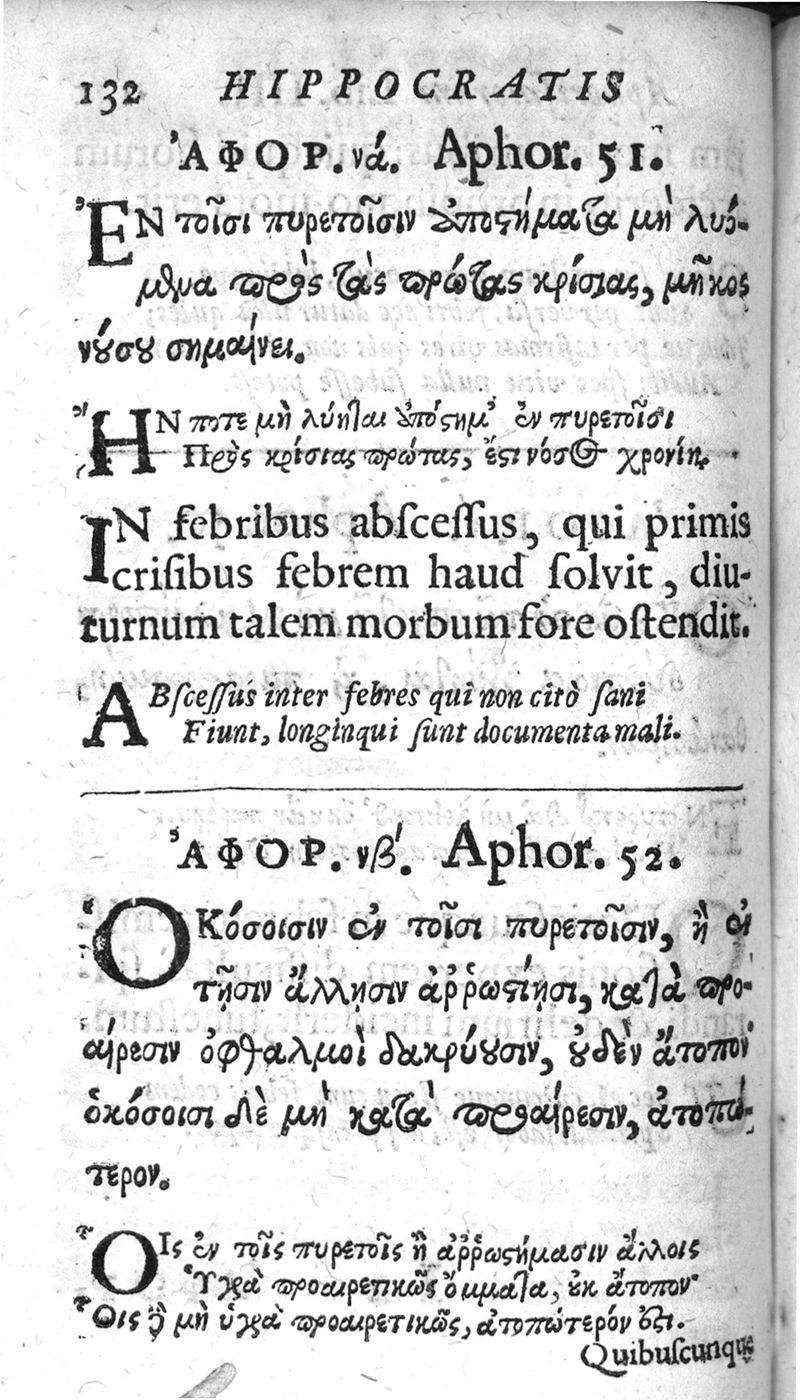 132 HIPPOCRATIS
ἈΦΟΡ. νά. Aphor. 51.
ἘΝ τοῖσι πυρετοῖσιν ἀποστήματα μὴ λυό-
μενα πρὸς τὰς πρώτας κρίσιας, μῆκος
νούσου σημαίνει.
ἪΝ ποτε μὴ λύηται ἀπόστημ' ἐν πυρετοῖσι
Πρὸς κρίσιας πρώτας, ἔστι νόσος χρονίη.
IN febribus abſceſſus, qui primis
criſibus febrem haud ſolvit, diu-
turnum talem morbum fore oſtendit.
ABſceſſus inter febres qui non citò ſani
Fiunt, longinqui ſunt documenta mali.
ἈΦΟΡ. νβ'. Aphor. 52.
ὉΚόσοισιν ἐν τοῖσι πυρετοῖσιν, ἢ ἐν
τῇσιν ἄλλῃσιν ἀῤῥωστίῃσι, κατὰ προ-
αίρεσιν ὀφθαλμοὶ δακρύουσιν, οὐδὲν ἄτοπον
ὁκόσοισι δὲ μὴ κατὰ προαίρεσιν, ἀτοπώ-
τερον.
ΟἿς ἐν τοῖς πυρετοῖς ἢ ἀῤῥωστήμασιν ἄλλοις
Ὑγρὰ προαιρετικῶς ὄμματα, οὐκ ἄτοπον
Οἷς δὲ μὴ ὑγρὰ προαιρετικῶς, ἀτοπώτερόν ἐστι.
Quibuſcunque